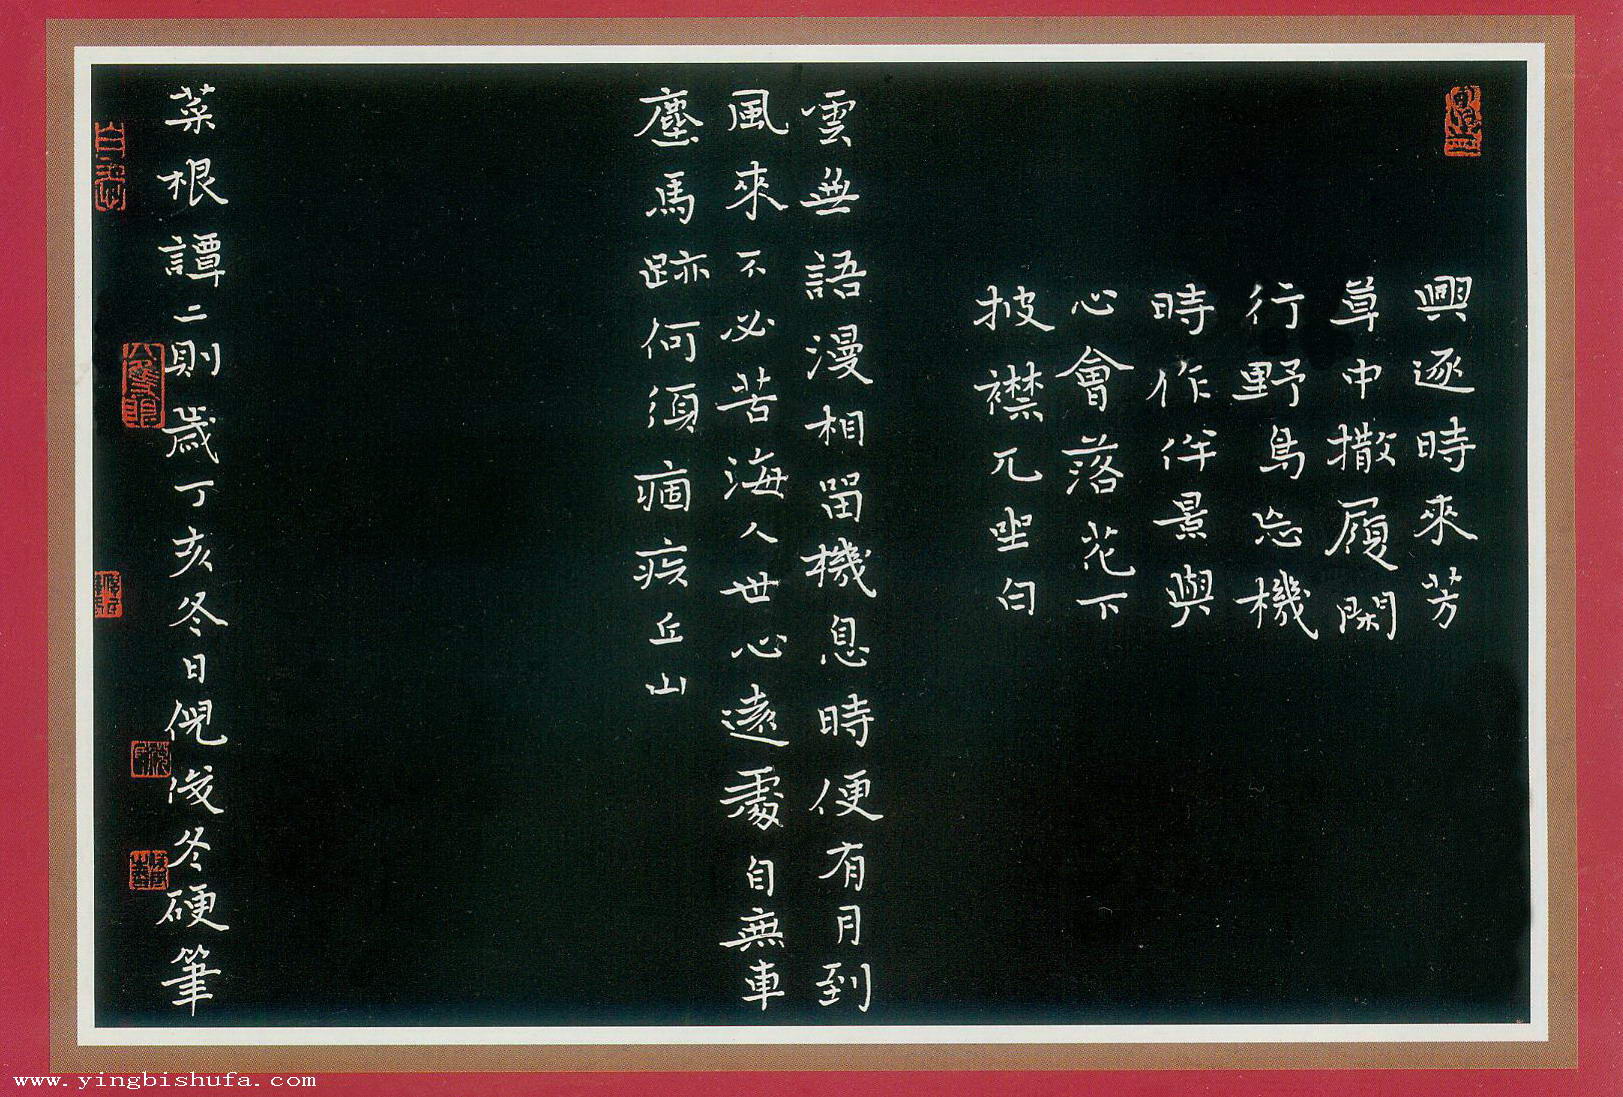 興逐時來芳
草中撒履閑
行野鳥忘機
時作伴景與
心會落花下
披襟兀坐白
雲無語漫相留機息時便有月到
風來不必苦海人世心遠處自無車
塵馬跡何須痼疾丘山
菜根譚二則歲丁亥冬日倪俊冬硬筆
www.yingbishufa.com